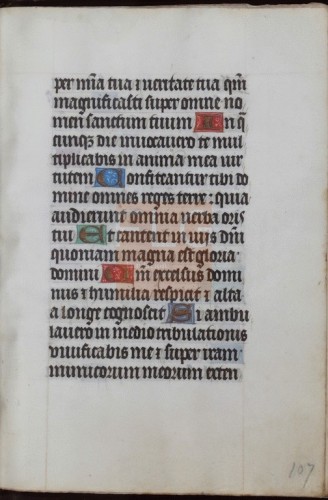 per mia tua ⁊ ueritate tua qm
magnificasti super omne no
men sanctum tuum In q
cunque die inuocauero te mul
tiplicabis in anima mea uir
tutem Confiteantur tibi do
mine omnes reges terre : quia
audierunt omnia uerba oris
tui Et cantent in uijs dni
quoniam magna est gloria
domini Qm excelsus domi
nus ⁊ humilia respicit ⁊ alta
a longe cognoscit Si ambu
lauero in medio tribulationis
uiuificabis me ⁊ super iram
inimicorum meorum exten
107